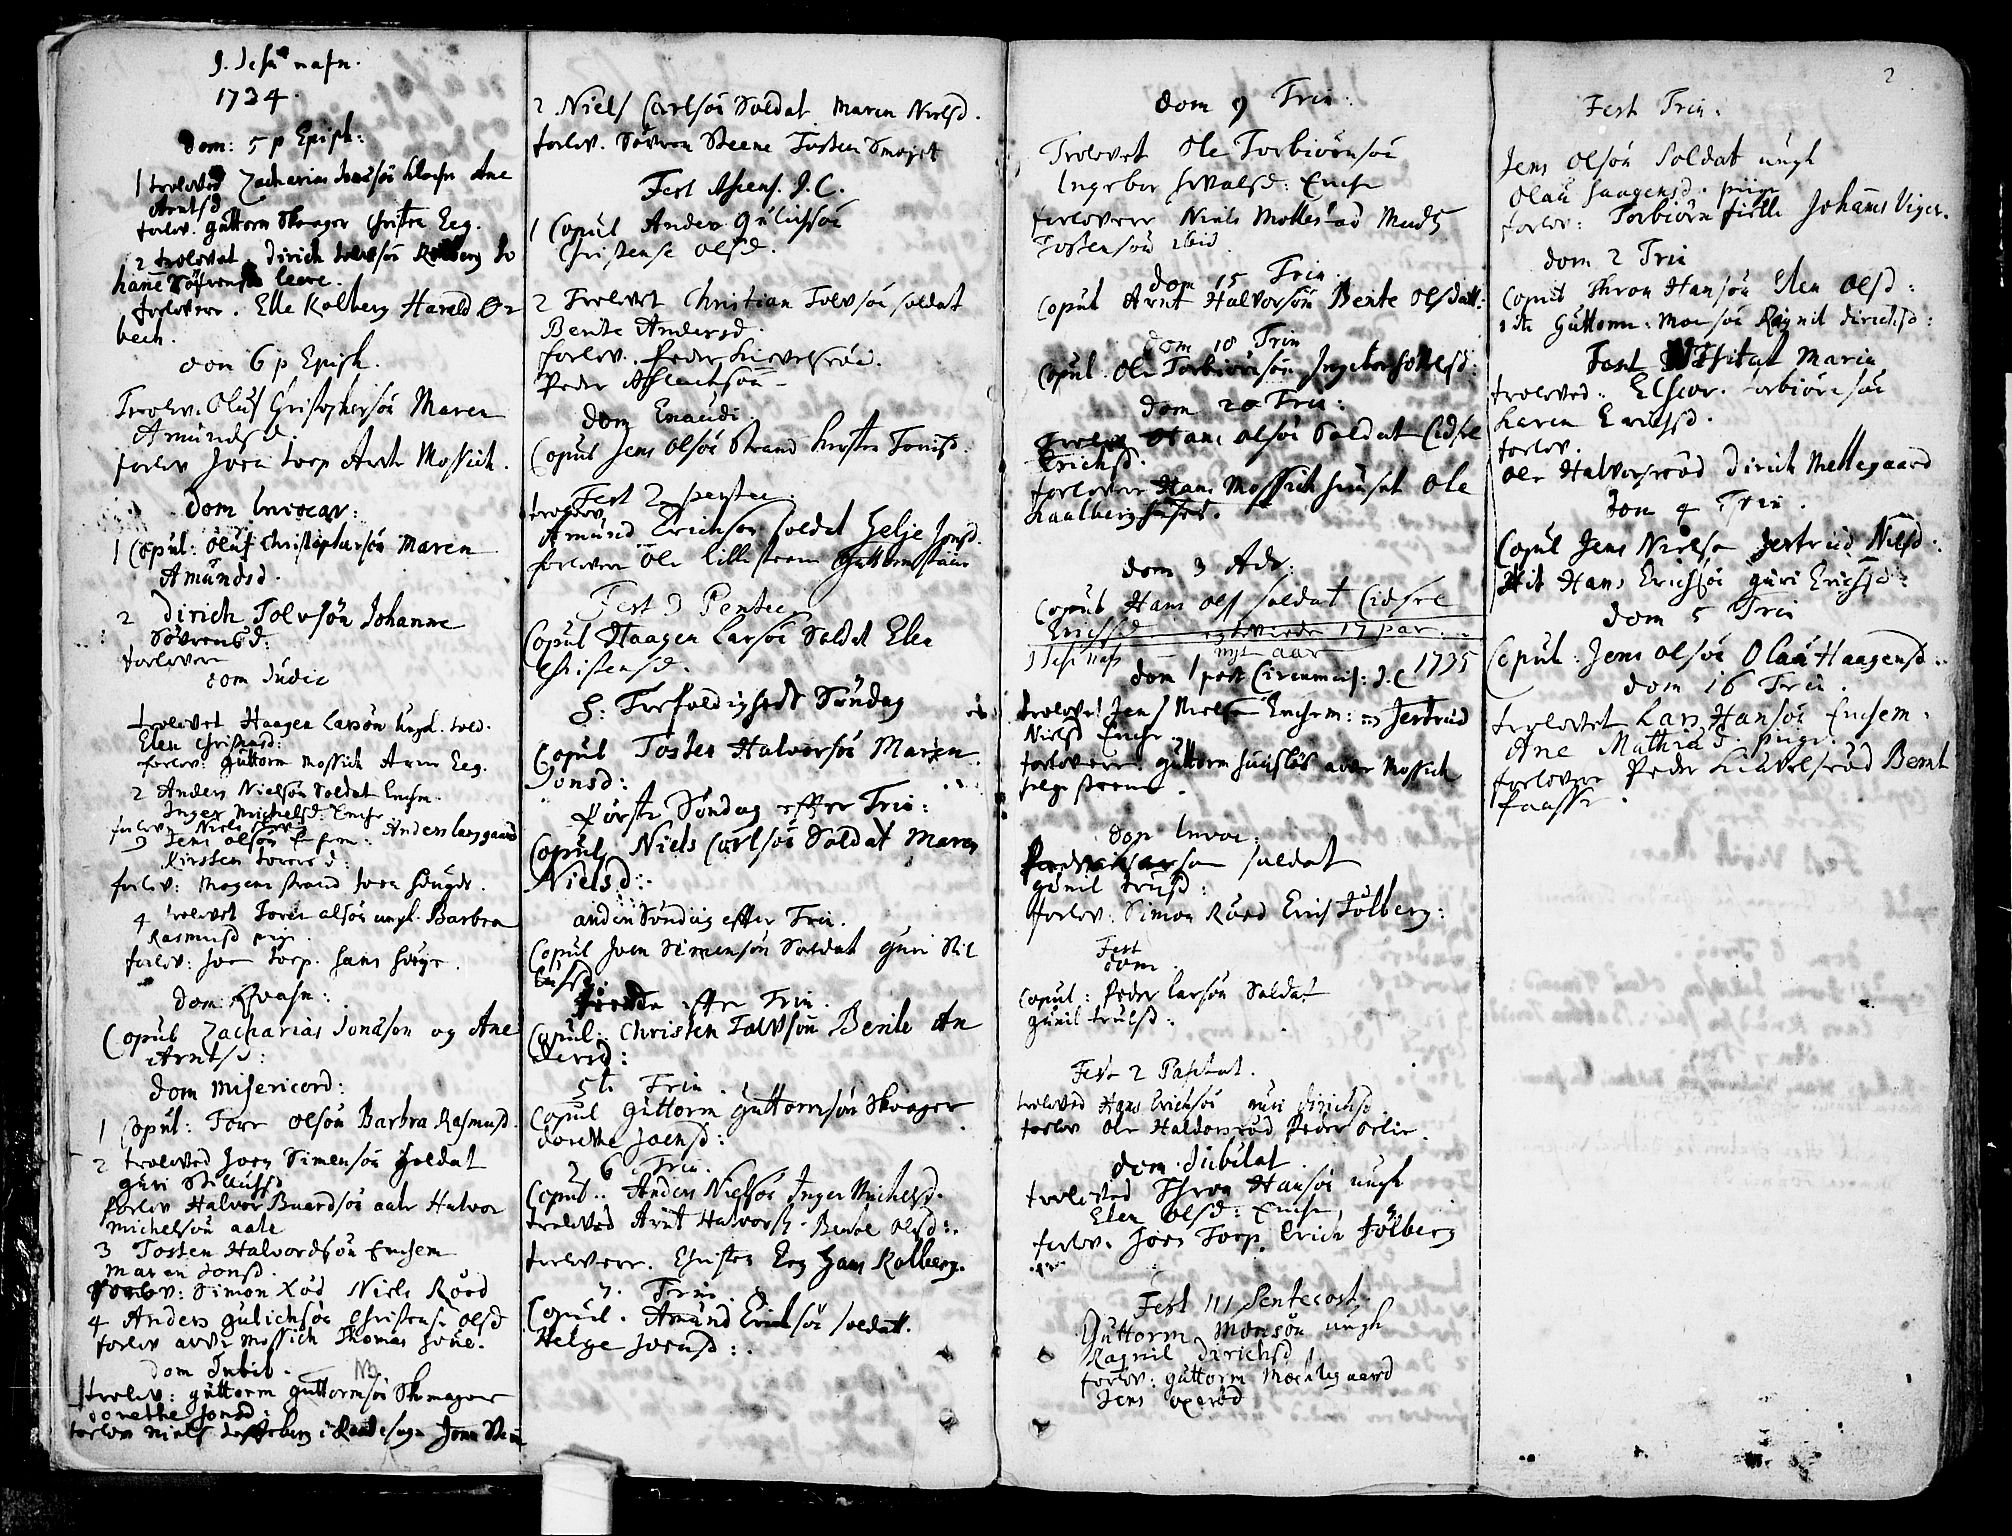 J. Jesu nafn.
1734.
Dom: 5 p Epiph:
1 troloved Zacharias Jonasön Ane
Arntsd
forlov. Guttorm Skoager Christen Eeg.
2 trolovet. Dirich Tolvsön Kolberg Jo
hane Söfrensd leere.
forlovere. Elle Kolberg Harald Ør
bech.
Dom 6 p Epiph.
Trolov. Oluf Christophersön Maren
Amundsd.
forlov Joen torp Arve Mossich.
Dom Invocav:
1 Copul: Oluf Christophersön Maren
Amundsd.
2 Dirich Tolvsön Johanne
Sövrensd.
forlovere
Dom Judic
trolovet Haagen Larsön ungk. sold:
Elen Christensd:
forlov: Guttorm Mossich Arne Eeg.
2 Anders Nielsön Soldat Enchem.
Inger Michelsd: Enche
forlov. Niels Anders langgaard
3 Jens Olsön
Kirsten
forlov: Mogens strand Joen Houger.
4 trolovet Torer olsön ungk. Barbra
Rasmusd pige.
forlov: Joen torp. Hans Houge.
Dom: Qvasm:
Copul Zacharias Jonason og Ane
Arntsd:
Dom Misericord:
1 Copul: Torer Olsön Barbra Rasmusd.
2 troloved Joen Simensön Soldat
Guri Stillufsd
forlov Halvor Buardsön aale Halvor
Michelsön aale
3 Tosten Halvordsön Enchem
Maren Jonsd.
forlov: Simon Röd Niels Röed
4 Anders Gulichsön Christense Olsd
forlov arve Mossich Thomas Hone.
Dom Jubil. NB
1 trolov: Guttorm Guttormsön Skoager
Dorethe Jonsd:
forlov Niels Løffsberg i Raadesogn Jonn
2 Niels Carlsön Soldat. Maren Nielsd.
forlov. Sövren Steene Tosten Smaget
Fest Ascens. J. C.
1 Copul Anders Gulichsön
Christense Olsd.
2 Trolovet Christian Tolvsön soldat
Bente Andersd.
forlov. Peder Lievelsröd.
Peder Aslachsön
Dom Exaudi.
Copul Jens Olsön Strand Kirsten Torrisd.
Fest 2 pentec.
trolov.
Amund Erichsön soldat Helje Jonsd.
forlovere Ole lillestrom Guttorm
Fest 3 Pentec.
Copul Haagen Larsön Soldat Elen
Christensd.
H: Trefoldigheds Söndag
Copul Tosten Halvorsön Maren
Jonsd:
Förste Söndag effter Trin:
Copul Niels Carlsön Soldat Maren
Nielsd:
anden Söndag effter Trin.
Copul Joen Simensön Soldat Guri Stil
lufsd.
fierde effter Trin.
Copul: Christen Tolvsön Bente An
dersd:
5te Trin.
Copul Guttorm Guttormsön Skoager
Dorethe Joensd:
6 Trin.
Copul: Anders Nielsön Inger Michelsd.
troloved Arnt Halvors: Bente Olsd:
forlovere. Christen Eeg Hans Kolberg.
7. Trin.
Copul. Amund Erichsön soldatt.
Helge Joensd:
Dom 9 Trin:
Trolovet Ole Torbiörnsön
Ingebor Enche
forlovere Niels Mollestad Mads
Tostensön ibid.
Dom 15 Trin.
Copul Arnt Halvorsön Bente Olsdatt:
Dom 18 Trin
Copul Ole Torbiörnsön Ingebor
Dom 20 Trin:
trolov Hans Olsön Soldat Cidsel
Erichsd.
forlovere Hans Mossich huuset Ole
Kaalberg huuset.
Dom 3 Adv:
Copul Hans Ols soldat Cidsel
Erichsd. 17 par
J Jesu Nafn nyt aar
Dom 1 post Circumcis: J. C 1735
trolovet Jens Nielsen Enchem: Jertrud
Nielsd Enche.
forlovere Guttorm huuslös arve Mossich
Helge
Dom Invoc:
soldat
Gunil trulsd:
forlov: Simon Röed Erich Solberg:
Fest
Dom
Copul: Peder Larsön Soldat
Gunil trulsd:
Fest 2 Paschat.
troloved Hans Erichsön Guri Erichsd.
forlov Ole Haldorsröd Peder Oelie.
Dom Jubilat.
troloved Thron Hansön ungk
Elen Olsd: Enche
forlov. Joen Torp. Erich Solberg
Fest III Pentecost.
Guttorm Monsön ungk
Ragnil Dirichsd
forlov: Guttorm Mochlegaard
Jens oxeröd
2
Fest Trin:
Jens Olsön Soldat ungk
Olau Haagensd. piige
forlov: Torbiörn fielle Johans Viger.
Dom 2 Trin
Copul Thron Hansön Elen Olsd:
item Guttorm Monsön Ragnil Dirichsd:
Fest Visitat Mariæ
troloved: Elsevr. torbiörnsön
Karen Erichsd.
forlov.
Ole Halvorsröd Dirich Mellegaard
Dom 4 Trin.
Copul Jens Nielsen Jertrud Nielsd:
Hans Erichsön Guri Erichsd:
Dom 5 Trin
Copul: Jens Olsön Olau Haagensd:
Dom 16 Trin.
trolovet Lars Hansön Enchem.
Ane Mathiasd. piige.
forlovere Peder Lievelsröd Bernt
Paaske.